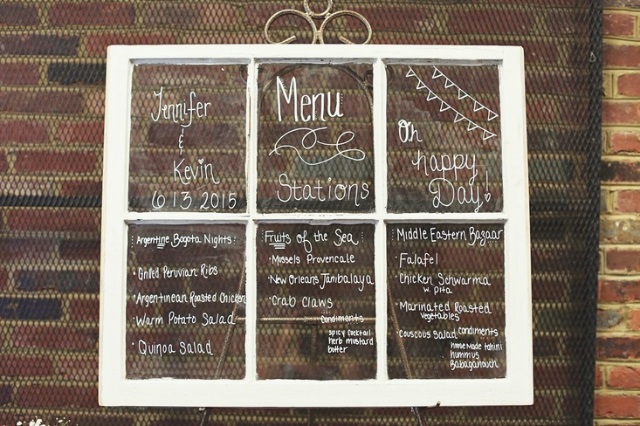 Jennifer
&
Kevin
6 13 2015
Menu
Stations
Oh
happy
Day!
Argentine Bogota Nights:
• Grilled Peruvian Ribs
• Argentinean Roasted Chicken
• Warm Potato Salad
• Quinoa Salad
Fruits of the Sea
• Mussels Provencale
• New Orleans Jambalaya
• Crab Claws
Condiments
spicy cocktail
herb mustard
butter
Middle Eastern Bazaar
• Falafel
• Chicken Schwarma
w. pita
• Marinated Roasted
Vegetables
• Couscous Salad
condiments
homemade tahini
hummus
Babaganouch